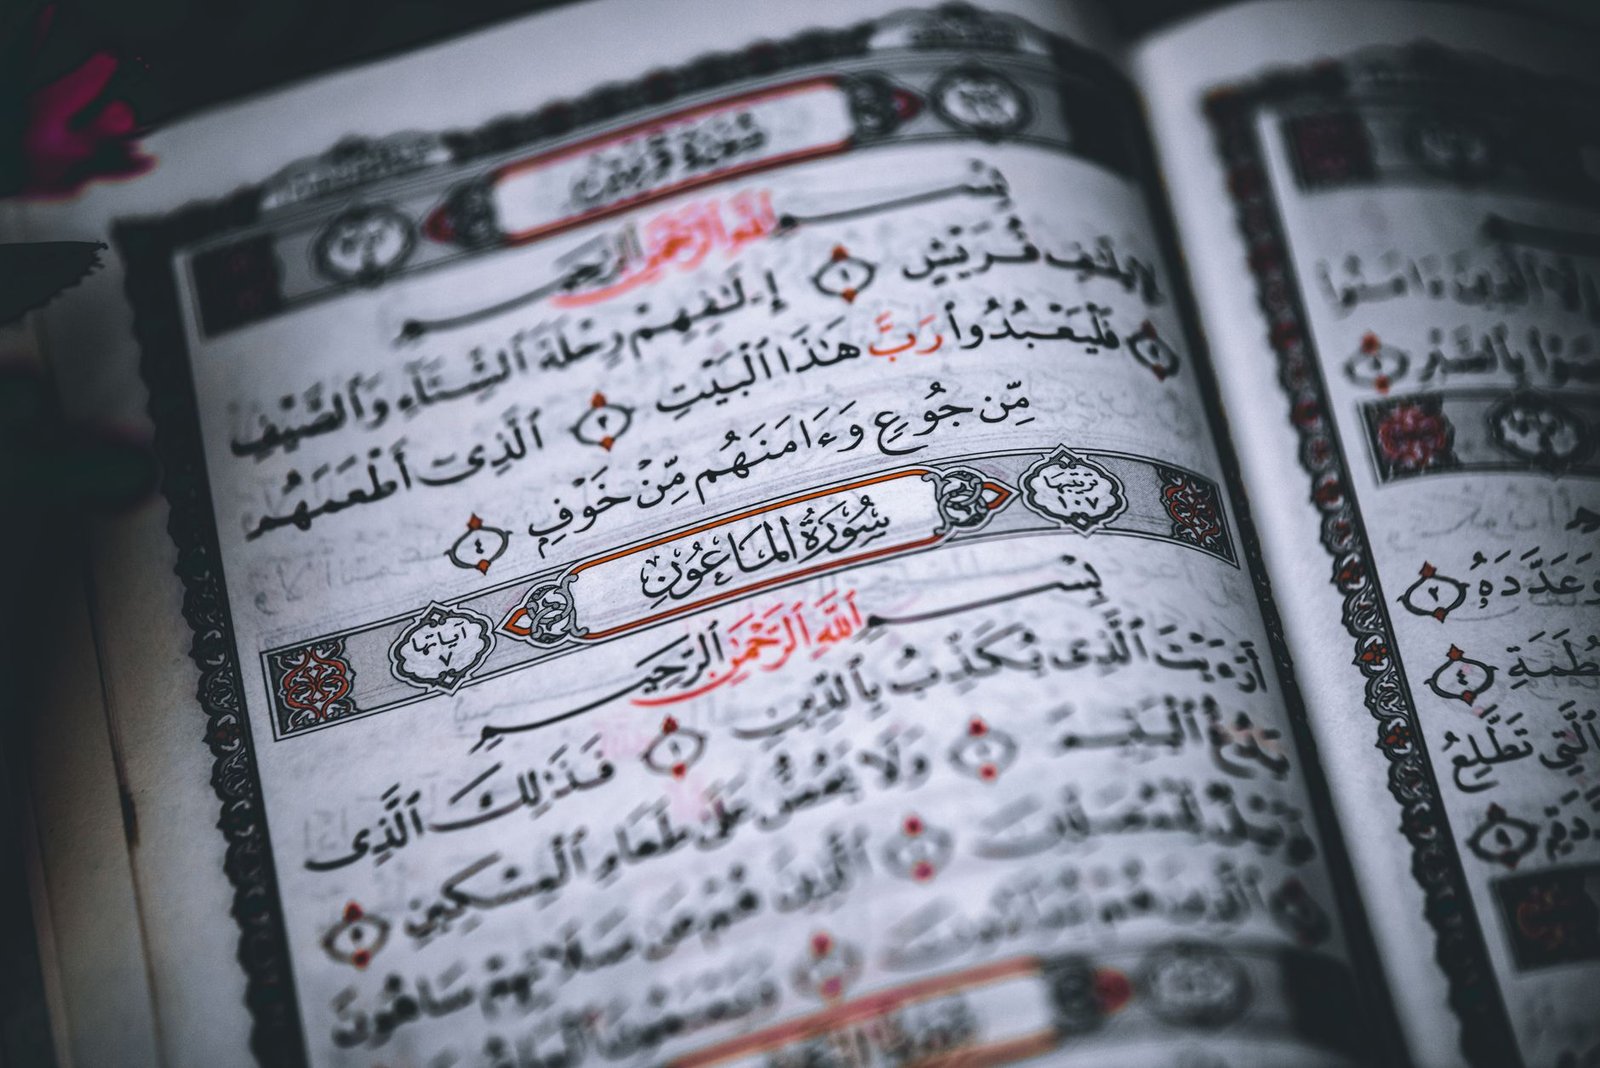 سُورَةُ قُرَيْشٍ
بِسْمِ ٱللَّهِ ٱلرَّحْمَٰنِ ٱلرَّحِيمِ
لِإِيلَٰفِ قُرَيْشٍ ١ إِۦلَٰفِهِمْ رِحْلَةَ ٱلشِّتَآءِ وَٱلصَّيْفِ
٢ فَلْيَعْبُدُوا۟ رَبَّ هَٰذَا ٱلْبَيْتِ ٣ ٱلَّذِىٓ أَطْعَمَهُم
مِّن جُوعٍ وَءَامَنَهُم مِّنْ خَوْفٍ ٤
ترتيبها ١٠٧ سُورَةُ المَاعُونِ آياتها ٧
بِسْمِ ٱللَّهِ ٱلرَّحْمَٰنِ ٱلرَّحِيمِ
أَرَءَيْتَ ٱلَّذِى يُكَذِّبُ بِٱلدِّينِ ١ فَذَٰلِكَ ٱلَّذِى
يَدُعُّ ٱلْيَتِيمَ ٢ وَلَا يَحُضُّ عَلَىٰ طَعَامِ ٱلْمِسْكِينِ ٣
فَوَيْلٌ لِّلْمُصَلِّينَ ٤ ٱلَّذِينَ هُمْ عَن صَلَاتِهِمْ سَاهُونَ
ٱلَّذِينَ هُمْ يُرَآءُونَ
ٱلَّذِينَ ءَامَنُوا۟
بِٱلصَّبْرِ ٣
وَعَدَّدَهُۥ ٢
ٱلَّتِى تَطَّلِعُ